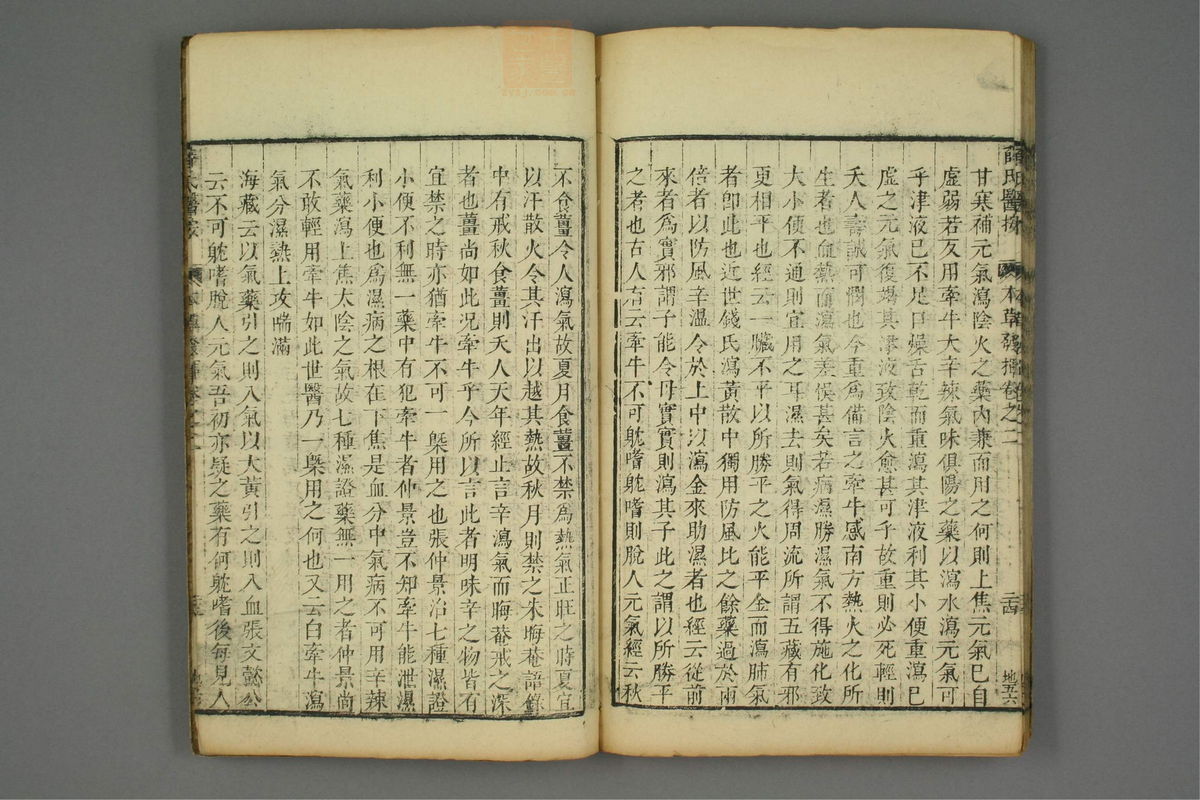 薛氏醫按 本草發揮卷之二 二十四 地五六
甘寒補元氣瀉陰火之藥內兼而用之何則上焦元氣已自
虛弱若反用牽牛大辛辣氣味俱陽之藥以瀉水瀉元氣可
乎津液已不足口燥舌乾而重瀉其津液利其小便重瀉已
虛之元氣復竭其津液致陰火愈甚可乎故重則必死輕則
夭人壽誠可憫也今重爲備言之牽牛感南方熱火之化所
生者也血熱而瀉氣差悞甚矣若病濕勝濕氣不得施化致
大小便不通則宜用之耳濕去則氣得周流所謂五藏有邪
更相平也經云一臟不平以所勝平之火能平金而瀉肺氣
者卽此也近世錢氏瀉黃散中獨用防風比之餘藥過於兩
倍者以防風辛溫令於上中以瀉金來助濕者也經云從前
來者爲實邪謂子能令母實實則瀉其子此之謂以所勝平
之者也古人有云牽牛不可躭嗜躭嗜則脫人元氣經云秋
不食薑令人瀉氣故夏月食薑不禁爲熱氣正旺之時夏宜
以汗散火令其汗出以越其熱故秋月則禁之朱晦菴語錄
中有戒秋食薑則夭人天年經止言辛瀉氣而晦菴戒之深
者也薑尚如此况牽牛乎今所以言此者明味辛之物皆有
宜禁之時亦猶牽牛不可一槩用之也張仲景治七種濕證
小便不利無一藥中有犯牽牛者仲景豈不知牽牛能泄濕
利小便也爲濕病之根在下焦是血分中氣病不可用辛辣
氣藥瀉上焦太陰之氣故七種濕證藥無一用之者仲景尚
不敢輕用牽牛如此世醫乃一槩用之何也又云白牽牛瀉
氣分濕熱上攻喘滿
海藏云以氣藥引之則入氣以大黃引之則入血張文懿公
云不可躭嗜脫人元氣吾初亦疑之藥有何躭嗜後每見人